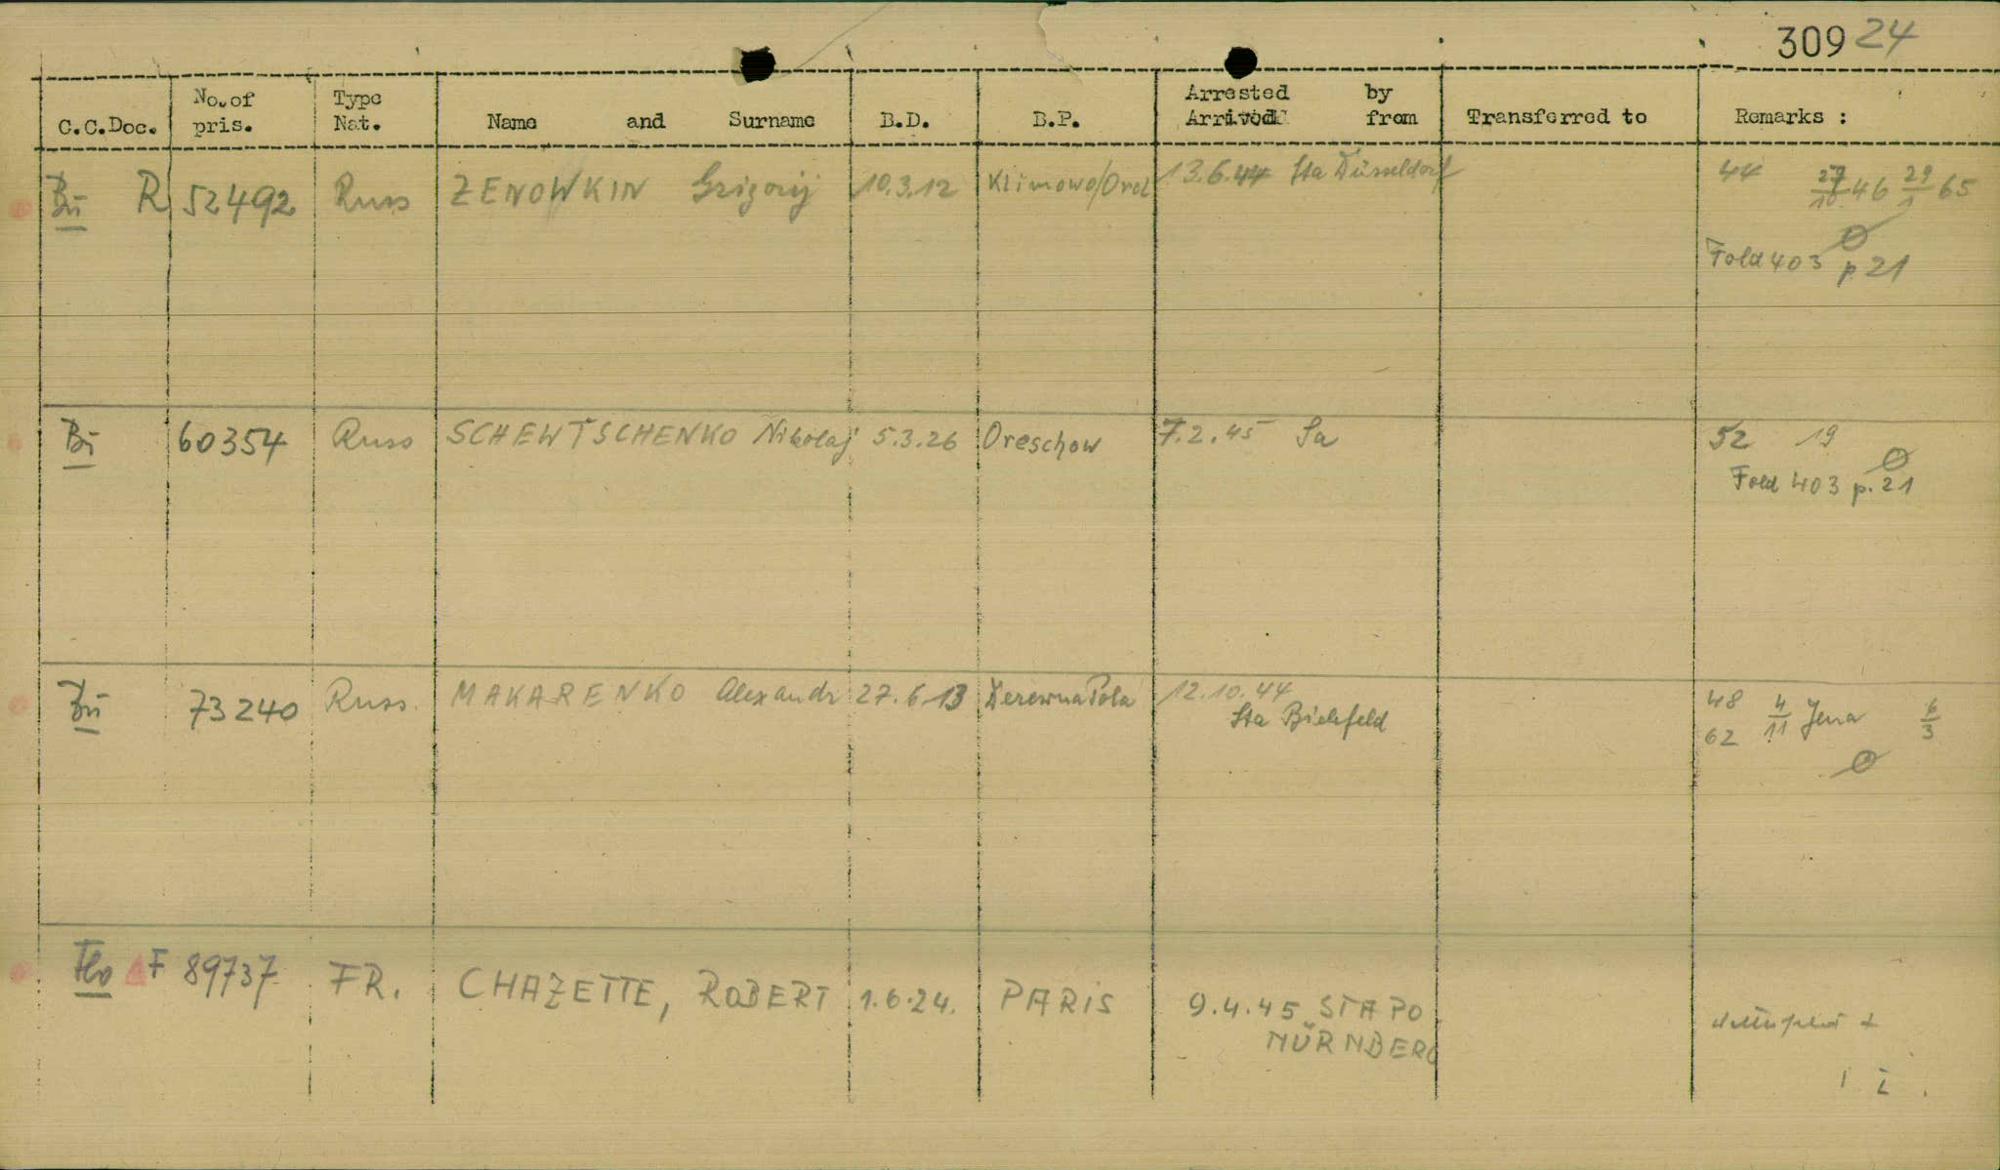 309 24
C.C.Doc. No. of pris. Type Nat. Name and Surname B.D. B.P. Arrested by Arrived from Transferred to Remarks :
Bu R 52492 Russ ZENOWKIN Grigorij 10.3.12 Klimowo/Orel 13.6.44 Sta Düsseldorf 44 27/10 46 29/1 65
Fold 403 p 21
Bu 60354 Russ SCHEWTSCHENKO Nikolaj 5.3.26 Oreschow 7.2.45 Sa 52 19
Fold 403 p. 21
Bu 73240 Russ. MAKARENKO Alexandr 27.6.13 Derewna Pola 12.10.44 Sta Bielefeld 48 4/11 Jena 6/3
62
Flo F 89737 FR. CHAZETTE, ROBERT 1.6.24. PARIS 9.4.45 STAPO NÜRNBERG